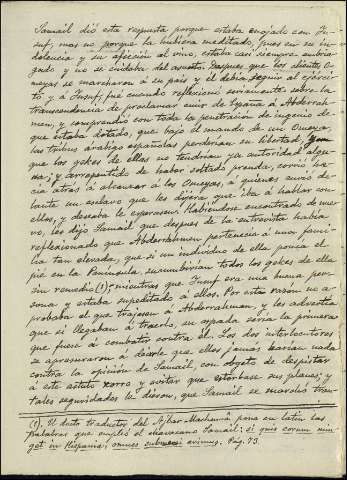 Samail dió esta respuesta porque estaba enojado con Yu-
suf, mas no porque la hubiera meditado, pues en su in-
dolencia y su afección al vino, estaba casi siempre embria-
gado y no se cuidaba del asunto. Despues que los clientes O-
meyas se marcharon á su pais y él debia seguir al ejérci-
to y á Yusuf, fué cuando reflexionó seriamente sobre la
transcendencia de proclamar emir de España á Abderrah-
men, y comprendió con toda la penetracion de ingenio de
que estaba dotado, que bajo el mando de un Omeya,
las tribus arábigo españolas perderian su libertad y
que los gefes de ellas no tendrian ya autoridad algu-
na; y arrepentido de haber soltado prenda, corrió ha-
cia atrás á alcanzar á los Omeyas, á quienes envió de-
lante un esclavo que les dijera que iba á hablar con
ellos, y deseaba le esperasen. Habiendose encontrado de nue-
vo, les dijo Samail que despues de la entrevista habia
reflexionado que Abderrahmen pertenecia á una fami-
lia tan elevada, que si un individuo de ella ponia el
pié en la Peninsula, sucumbirian todos los gefes de ella
sin remedio (1); mientras que Yusuf era una buena per-
sona y estaba supeditado á ellos. Por esta razón no a-
probaba el que trajesen á Abderrahmen, y les advertia
que si llegaban á traerlo, su espada seria la primera
que fuese á combatir contra él. Los dos interlocutores
se apresuraron á decirle que ellos jamás harian nada
contra la opinión de Samail, con objeto de despistar
á este astuto zorro y evitar que estorbase sus planes; y
tales seguridades le dieron, que Samail se marchó tran-
(1). El docto traductor del Ajbar Machmuâ pone en latin las
palabras que empleó el Samail: si quis eorum min-
get in Hispania, omnes submersi erimus. Pág. 73.